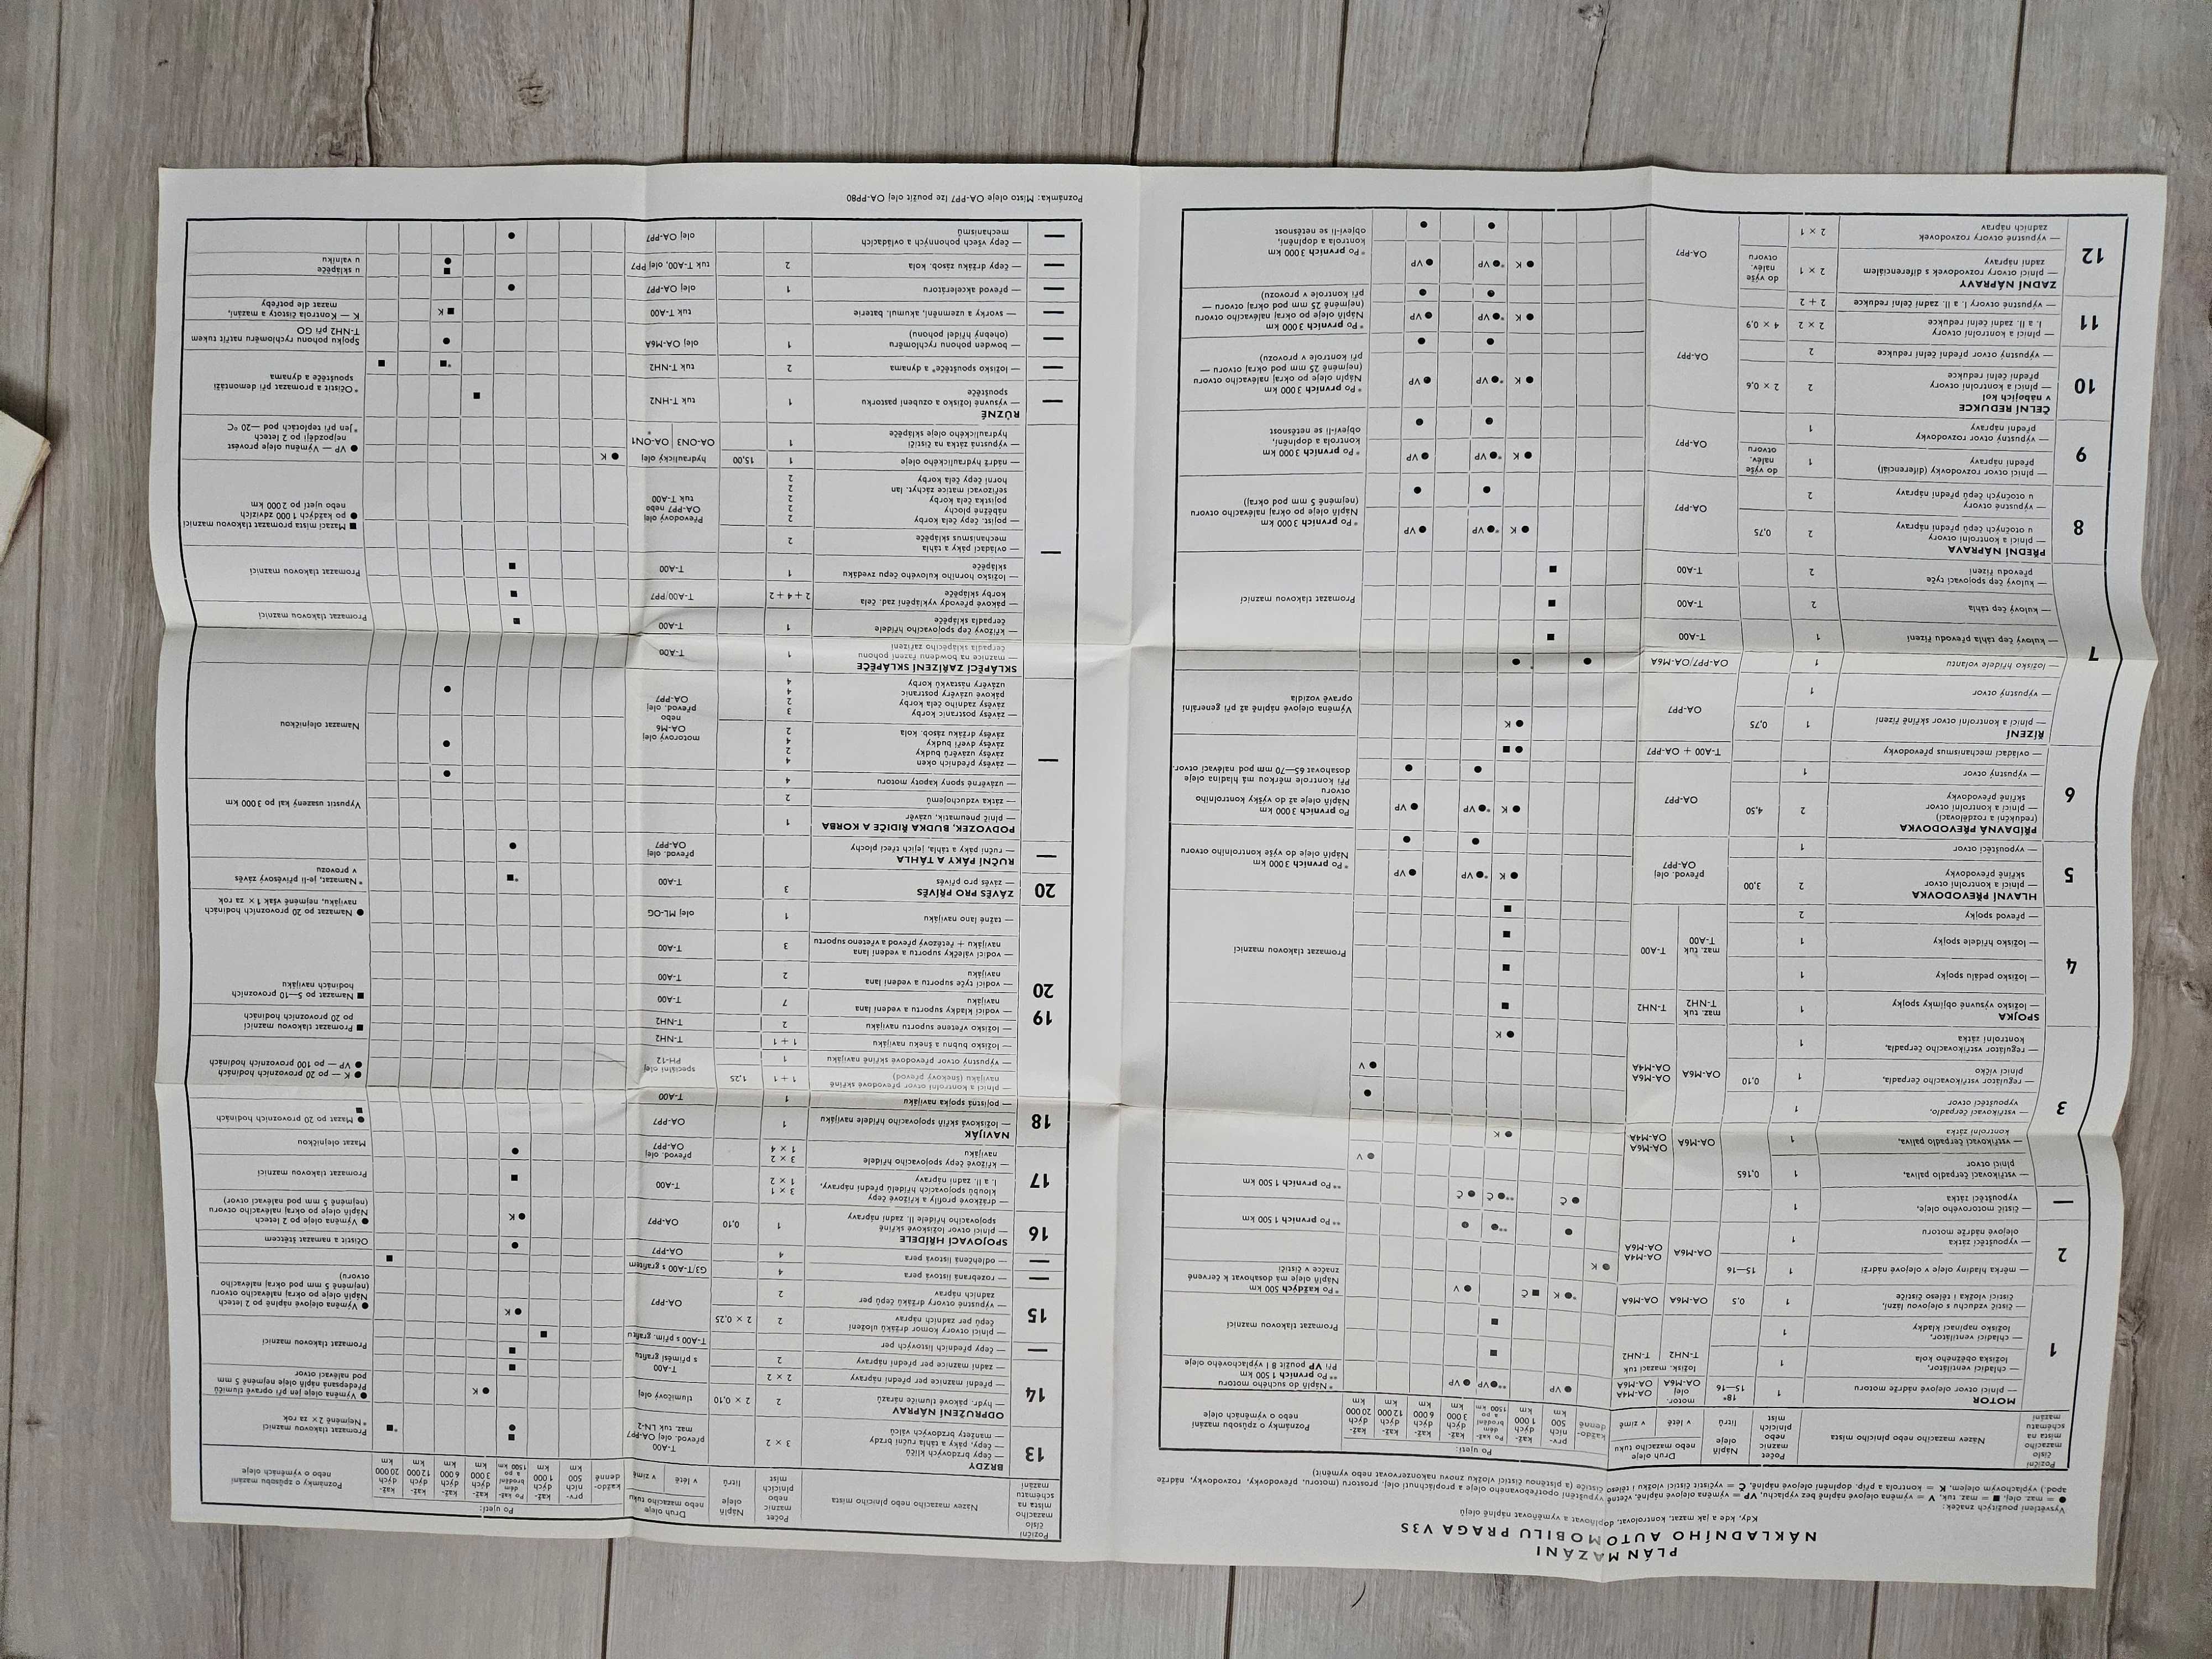 PLÁN MAZÁNÍ
NÁKLADNÍHO AUTOMOBILU PRAGA V3S
Kdy, kde a jak mazat, kontrolovat, doplňovat a vyměňovat náplně olejů
Vysvětlení použitých značek:
● = maz. olej, ■ = maz. tuk, V = výměna olejové náplně bez výplachu, VP = výměna olejové náplně, včetně vypuštění opotřebovaného oleje a propláchnutí olej. prostoru (motoru, převodovky, rozvodovky, nádrže
apod.) výplachovým olejem, K = kontrola a příp. doplnění olejové náplně, Č = vyčistit čisticí vložku i těleso čističe (a plstěnou čisticí vložku znovu nakonzervovat nebo vyměnit)
Poziční číslo mazacího místa na schématu mazání
Název mazacího nebo plnicího místa
Počet maznic nebo plnicích míst
Náplň oleje litrů
Druh oleje nebo mazacího tuku
v létě
v zimě
Po ujetí:
každo- denně
prv- ních 500 km
kaž- dých 1 000 km
Po kaž. brodění a po 1500 km
kaž- dých 3 000 km
kaž- dých 6 000 km
kaž- dých 12 000 km
kaž- dých 20 000 km
Poznámky o způsobu mazání nebo o výměnách oleje
1
MOTOR
— plnicí otvor olejové nádrže motoru 1 18* 15—16 motor. olej OA-M6A OA-M6A OA-M4A ● VP **● VP ● VP
* Náplň do suchého motoru
** Po prvních 1 500 km
při VP použít 8 l výplachového oleje
— chladicí ventilátor, ložiska oběžného kola 1 ložisk. mazací tuk T-NH2 T-NH2 ■
— chladicí ventilátor, ložisko napínací kladky 1 ■
Promazat tlakovou maznicí
— čistič vzduchu s olejovou lázní, čisticí vložka i těleso čističe 1 0,5 OA-M6A OA-M6A *● K ■ Č ● V
* Po každých 500 km
Náplň oleje má dosahovat k červené značce v čističi
2
— měrka hladiny oleje v olejové nádrži 1 15—16 OA-M6A OA-M4A OA-M6A ● K
— vypouštěcí zátka olejové nádrže motoru 1 ● **● ●
** Po prvních 1 500 km
—
— čistič motorového oleje, vypouštěcí zátka 1 ● Č **● Č ● Č
** Po prvních 1 500 km
3
— vstřikovací čerpadlo paliva, plnicí otvor 1 0,165 OA-M6A OA-M6A OA-M4A ● V
— vstřikovací čerpadlo paliva, kontrolní zátka 1 ● K
— vstřikovací čerpadlo, vypouštěcí otvor 1 ●
— regulátor vstřikovacího čerpadla, plnicí víčko 1 0,10 OA-M6A OA-M6A OA-M4A ● V
— regulátor vstřikovacího čerpadla, kontrolní zátka 1 ● K
4
SPOJKA
— ložisko výsuvné objímky spojky 1 maz. tuk T-NH2 T-NH2 ■
— ložisko pedálu spojky 1 ■
— ložisko hřídele spojky 1 maz. tuk T-A00 T-A00 ■
— převod spojky 2 ■
Promazat tlakovou maznicí
5
HLAVNÍ PŘEVODOVKA
— plnicí a kontrolní otvor skříně převodovky 2 3,00 převod. olej OA-PP7 ● K *● VP ● VP
— vypouštěcí otvor 1 ● ●
* Po prvních 3 000 km
Náplň oleje do výše kontrolního otvoru
6
PŘÍDAVNÁ PŘEVODOVKA
(redukční a rozdělovací)
— plnicí a kontrolní otvor skříně převodovky 2 4,50 OA-PP7 ● K *● VP ● VP
— výpustný otvor 1 ● ●
— ovládací mechanismus převodovky T-A00 + OA-PP7 ● ■
Po prvních 3 000 km
Náplň oleje až do výšky kontrolního otvoru
Při kontrole měrkou má hladina oleje dosahovat 65—70 mm pod nalévací otvor.
7
ŘÍZENÍ
— plnicí a kontrolní otvor skříně řízení 1 0,75 OA-PP7 ● K
— výpustný otvor 1
Výměna olejové náplně až při generální opravě vozidla
— ložisko hřídele volantu 1 OA-PP7/OA-M6A ● ●
— kulový čep táhla převodu řízení 1 T-A00 ■
— kulový čep táhla 2 T-A00 ■
— kulový čep spojovací tyče převodu řízení 2 T-A00 ■
Promazat tlakovou maznicí
8
PŘEDNÍ NÁPRAVA
— plnicí a kontrolní otvory u otočných čepů přední nápravy 2 0,75 OA-PP7 ● K *● VP ● VP
— výpustné otvory u otočných čepů přední nápravy 2 ● ●
* Po prvních 3 000 km
Náplň oleje po okraj nalévacího otvoru
(nejméně 5 mm pod okraj)
9
— plnicí otvor rozvodovky (diferenciál) přední nápravy 1 do výše nalév. otvoru OA-PP7 ● K *● VP ● VP
— výpustný otvor rozvodovky přední nápravy 1 ● ●
* Po prvních 3 000 km
kontrola a doplnění,
objeví-li se netěsnost
10
ČELNÍ REDUKCE
v nábojích kol
— plnicí a kontrolní otvory přední čelní redukce 2 2 × 0,6 OA-PP7 ● K *● VP ● VP
— výpustný otvor přední čelní redukce 2 ● ●
* Po prvních 3 000 km
Náplň oleje po okraj nalévacího otvoru
(nejméně 25 mm pod okraj otvoru —
při kontrole v provozu)
11
— plnicí a kontrolní otvory I. a II. zadní čelní redukce 2 × 2 4 × 0,9 ● K *● VP ● VP
— výpustné otvory I. a II. zadní čelní redukce 2 + 2 ● ●
* Po prvních 3 000 km
Náplň oleje po okraj nalévacího otvoru
(nejméně 25 mm pod okraj otvoru —
při kontrole v provozu)
12
ZADNÍ NÁPRAVY
— plnicí otvory rozvodovek s diferenciálem zadní nápravy 2 × 1 do výše nalév. otvoru OA-PP7 ● K *● VP ● VP
— výpustné otvory rozvodovek zadních náprav 2 × 1 ● ●
* Po prvních 3 000 km
kontrola a doplnění,
objeví-li se netěsnost
Poziční číslo mazacího místa na schématu mazání
Název mazacího nebo plnicího místa
Počet maznic nebo plnicích míst
Náplň oleje litrů
Druh oleje nebo mazacího tuku
v létě
v zimě
Po ujetí:
každo- denně
prv- ních 500 km
kaž- dých 1 000 km
Po kaž. brodění a po 1500 km
kaž- dých 3 000 km
kaž- dých 6 000 km
kaž- dých 12 000 km
kaž- dých 20 000 km
Poznámky o způsobu mazání nebo o výměnách oleje
13
BRZDY
— čepy brzdových klíčů
— čepy, páky a táhla ruční brzdy
— manžety brzdových válců
3 × 2
T-A00
převod. olej OA-PP7
maz. tuk LN-2
■ ● *■
Promazat tlakovou maznicí
* Nejméně 2× za rok
14
ODPRUŽENÍ NÁPRAV
— hydr. pákové tlumiče nárazů 2 2 × 0,10 tlumičový olej ● K
● Výměna oleje jen při opravě tlumičů
Předepsaná náplň oleje nejméně 5 mm
pod nalévací otvor
— přední maznice per přední nápravy 2 × 2 T-A00 s příměsí grafitu ■
— zadní maznice per přední nápravy 2 ■
—
— čepy předních listových per T-A00 s přím. grafitu ■
Promazat tlakovou maznicí
15
— plnicí otvory komor držáků uložení čepů per zadních náprav 2 2 × 0,25 OA-PP7 ● K
— výpustné otvory držáků čepů per zadních náprav 2
● Výměna olejové náplně po 2 letech
Náplň oleje po okraj nalévacího otvoru
(nejméně 5 mm pod okraj nalévacího
otvoru)
—
— rozebraná listová pera 4 G3/T-A00 s grafitem ■
—
— odlehčená listová pera 4 OA-PP7 ●
Očistit a namazat štětcem
16
SPOJOVACÍ HŘÍDELE
— plnicí otvor ložiskové skříně spojovacího hřídele II. zadní nápravy 1 0,10 OA-PP7 ● K
● Výměna oleje po 2 letech
Náplň oleje po okraj nalévacího otvoru
(nejméně 5 mm pod nalévací otvor)
17
— drážkové profily a křížové čepy kloubů spojovacích hřídelů přední nápravy, I. a II. zadní nápravy 3 × 1 1 × 2 T-A00 ■
Promazat tlakovou maznicí
— křížové čepy spojovacího hřídele navijáku 3 × 2 1 × 4 převod. olej OA-PP7 ●
Mazat olejničkou
18
NAVIJÁK
— ložisková skříň spojovacího hřídele navijáku 1 OA-PP7
— pojistná spojka navijáku 1 T-A00
● Mazat po 20 provozních hodinách
■
19
20
— plnicí a kontrolní otvor převodové skříně navijáku (šnekový převod) 1 + 1 1,25 speciální olej PH-12
— výpustný otvor převodové skříně navijáku 1
● K — po 20 provozních hodinách
● VP — po 100 provozních hodinách
— ložisko bubnu a šneku navijáku 1 + 1 T-NH2
— ložisko vřetene suportu navijáku 2 T-NH2
■ Promazat tlakovou maznicí
po 20 provozních hodinách
— vodicí kladky suportu a vedení lana navijáku 7 T-A00
— vodicí tyče suportu a vedení lana navijáku 2 T-A00
■ Namazat po 5—10 provozních
hodinách navijáku
— vodicí válečky suportu a vedení lana navijáku + řetězový převod a vřeteno suportu 3 T-A00
— tažné lano navijáku 1 olej ML-OG
● Namazat po 20 provozních hodinách
navijáku, nejméně však 1 × za rok
20
ZÁVĚS PRO PŘÍVĚS
— závěs pro přívěs 3 T-A00 *■
* Namazat, je-li přívěsový závěs
v provozu
—
RUČNÍ PÁKY A TÁHLA
— ruční páky a táhla, jejich třecí plochy převod. olej OA-PP7 ●
—
PODVOZEK, BUDKA ŘIDIČE A KORBA
— plnič pneumatik, uzávěr 1
— zátka vzduchojemů 2
Vypustit usazený kal po 3 000 km
— uzávěrné spony kapoty motoru 4 ●
— závěsy předních oken 4
závěsy uzávěrů budky 2
závěsy dveří budky 4
závěsy držáku zásob. kola 2
motorový olej OA-M6 nebo převod. olej OA-PP7
●
— závěsy postranic korby 3
závěsy zadního čela korby 2
pákové uzávěry postranic 4
uzávěry nástavků korby 4
●
Namazat olejničkou
—
SKLÁPĚCÍ ZAŘÍZENÍ SKLÁPĚČE
— maznice na bowdenu řazení pohonu čerpadla sklápěcího zařízení 1 T-A00
— křížový čep spojovacího hřídele čerpadla sklápěče 1 T-A00 ■
Promazat tlakovou maznicí
— pákové převody vyklápění zad. čela korby sklápěče 2 + 4 + 2 T-A00/PP7 ■
— ložisko horního kulového čepu zvedáku sklápěče 1 T-A00 ■
Promazat tlakovou maznicí
— ovládací páky a táhla mechanismus sklápěče 2
— pojist. čepy čela korby 2
náběžné plochy 2
pojistka čela korby 2
seřizovací matice záchyt. lan 2
horní čepy čela korby 2
Převodový olej OA-PP7 nebo tuk T-A00
■ Mazací místa promazat tlakovou maznicí
● po každých 1 000 zdvizích
nebo ujetí po 2 000 km
— nádrž hydraulického oleje 1 15,00 hydraulický olej ● K
— výpustná zátka na čističi hydraulického oleje sklápěče 1 OA-ON3 OA-ON1 *
● VP — Výměnu oleje provést
nejpozději po 2 letech
* Jen při teplotách pod —20 °C
—
RŮZNÉ
— výsuvné ložisko a ozubení pastorku spouštěče 1 tuk T-HN2 ■
—
— ložisko spouštěče* a dynama 2 tuk T-NH2 *■ ■
* Očistit a promazat při demontáži
spouštěče a dynama
—
— bowden pohonu rychloměru (ohebný hřídel pohonu) 1 olej OA-M6A ●
Spojku pohonu rychloměru natřít tukem
T-NH2 při GO
—
— svorky a uzemnění, akumul. baterie tuk T-A00 ■ K
K — Kontrola čistoty a mazání,
mazat dle potřeby
—
— převod akcelerátoru 1 olej OA-PP7 ●
—
— čepy držáku zásob. kola 2 tuk T-A00, olej PP7 ■ ●
u sklápěče
u valníku
—
— čepy všech pohonných a ovládacích mechanismů olej OA-PP7 ●
Poznámka: Místo oleje OA-PP7 lze použít olej OA-PP80